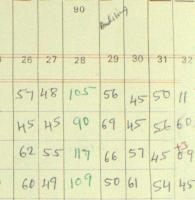 90
26 27 28 29 30 31 32
57 48 105 56 45 50 11
45 45 90 69 45 56 60
+3
62 55 117 66 57 45 69
60 49 109 50 61 54 45